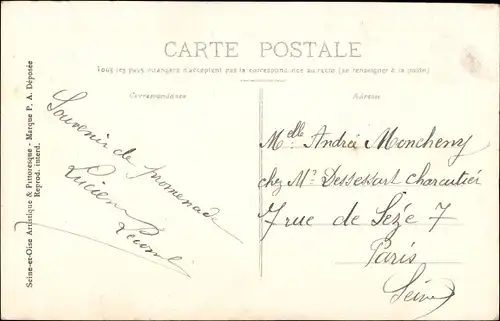 CARTE POSTALE
Tous les pays étrangers n'acceptent pas la correspondance au recto (se renseigner à la poste)
Correspondance
Adresse
Souvenir de promenade
Lucien
Melle Andrée Moncheny
chez Mr Dessessart charcutier
7 rue de Sèze 7
Paris
Seine
Seine-et-Oise Artistique & Pittoresque - Marque P. A. Déposée
Reprod. interd.